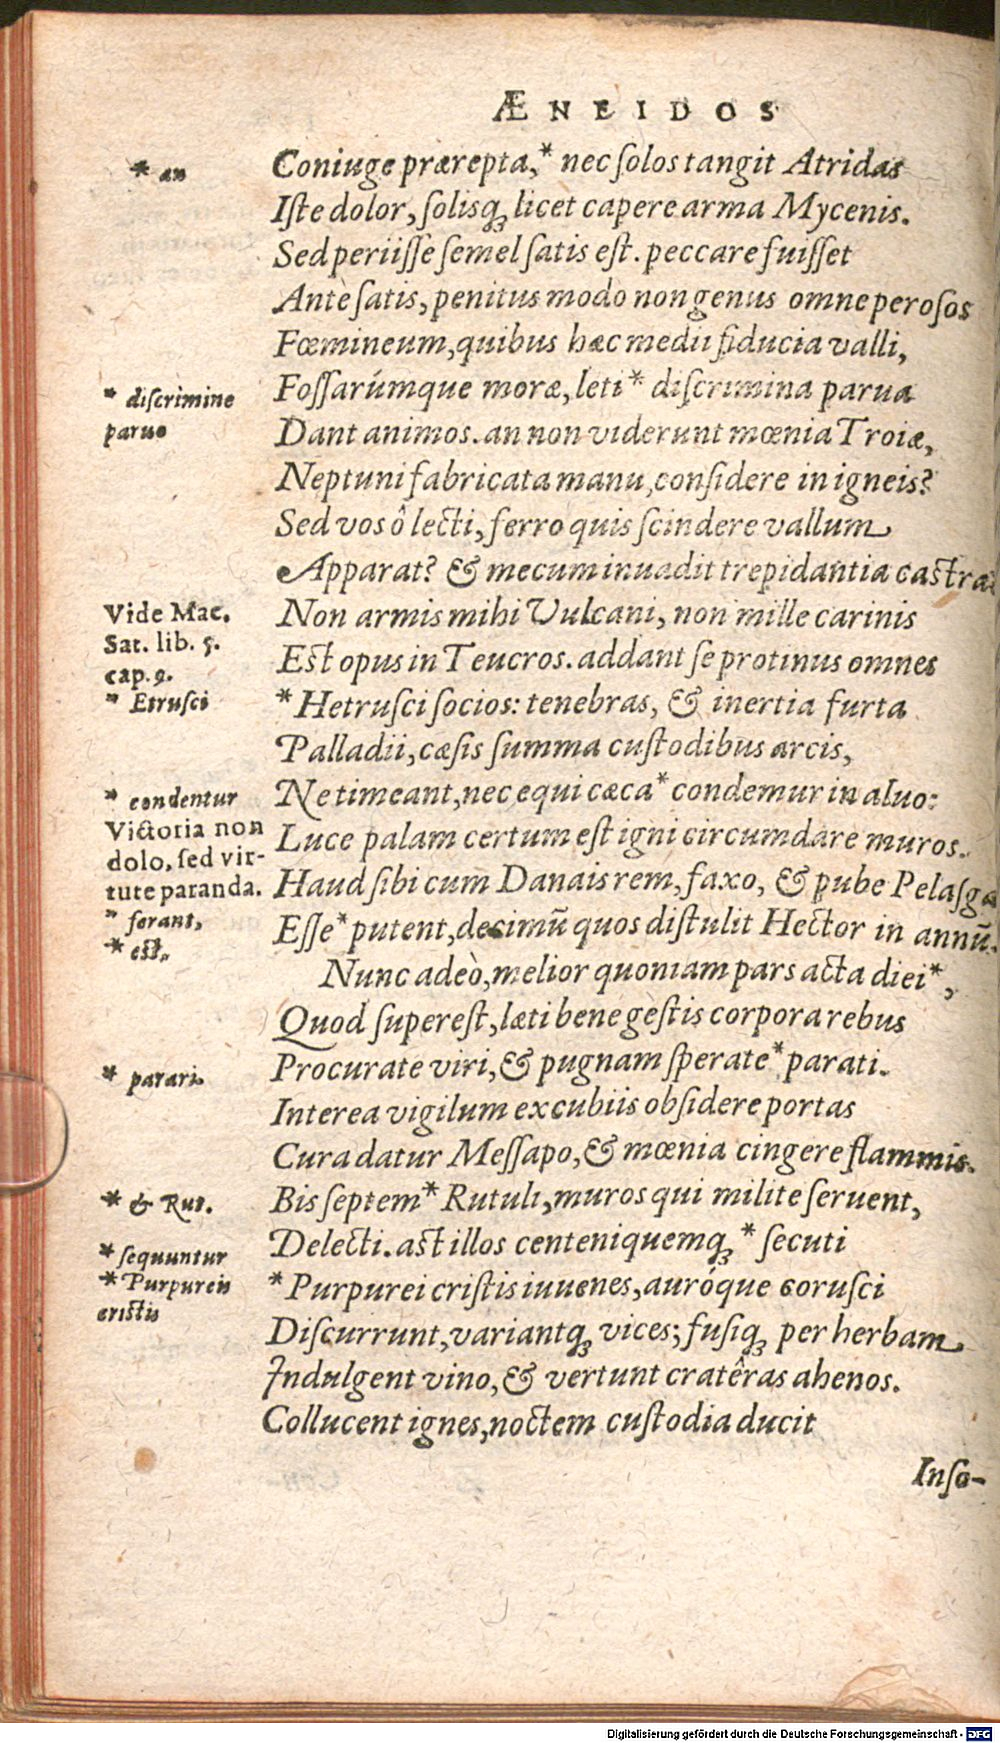 ÆNEIDOS
* an
Coniuge prærepta,* nec ſolos tangit Atridas
Iſte dolor, ſolisq́ꝫ licet capere arma Mycenis.
Sed periiſſe ſemel ſatis eſt. peccare fuiſſet
Antè ſatis, penitus modo non genus omne peroſos
Fœmineum, quibus hæc medii fiducia valli,
* diſcrimine
paruo
Foſſarúmque moræ, leti* diſcrimina parua
Dant animos. an non viderunt mœnia Troiæ,
Neptuni fabricata manu, conſidere in igneis?
Sed vos ô lecti, ferro quis ſcindere vallum
Apparat? & mecum inuadit trepidantia caſtra?
Vide Mac.
Sat. lib. 5.
cap. 9.
Non armis mihi Vulcani, non mille carinis
Eſt opus in Teucros. addant ſe protinus omnes
* Etruſci
*Hetruſci socios: tenebras, & inertia furta
Palladii, cæſis ſumma cuſtodibus arcis,
* condentur
Ne timeant, nec equi cæca* condemur in aluo:
Victoria non
dolo, ſed vir-
tute paranda.
Luce palam certum eſt igni circumdare muros.
Haud ſibi cum Danais rem, faxo, & pube Pelaſga
* ferant,
Eſſe* putent, decimũ quos diſtulit Hector in annũ.
* eſt,
Nunc adeò, melior quoniam pars acta diei*,
Quod ſupereſt, læti bene geſtis corpora rebus
* parari.
Procurate viri, & pugnam ſperate* parati.
Interea vigilum excubiis obſidere portas
Cura datur Meſſapo, & mœnia cingere flammis.
* & Rut.
Bis ſeptem* Rutuli, muros qui milite ſeruent,
* sequuntur
Delecti. aſt illos centeniquemqꝫ * ſecuti
* Purpureis
criſtis
*Purpurei criſtis iuuenes, auróque coruſci
Diſcurrunt, variantqꝫ vices; fuſiqꝫ per herbam
Indulgent vino, & vertunt cratêras ahenos.
Collucent ignes, noctem cuſtodia ducit
Inſo-
Digitalisierung gefördert durch die Deutsche Forschungsgemeinschaft - DFG